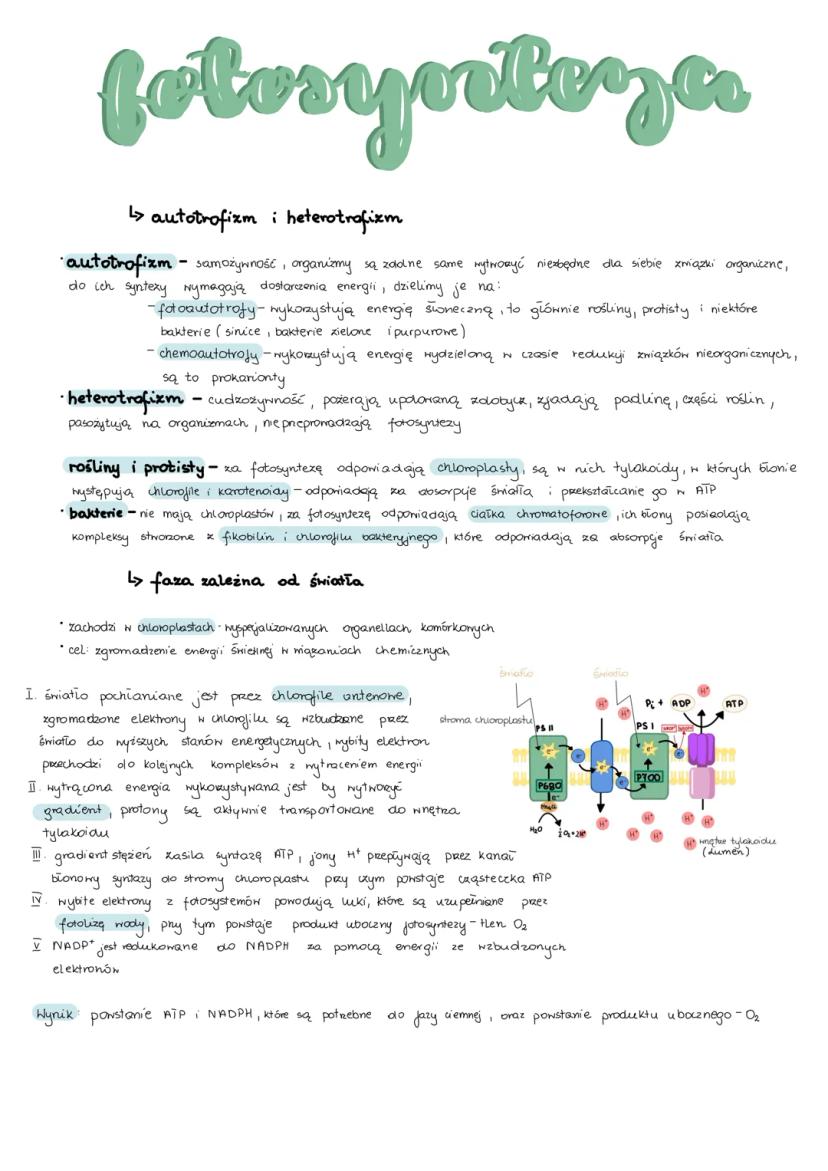 fotosynteza
↳ autotrofizm i heterotrofizm
· autotrofizm – samożywność, organizmy są zdolne same wytworzyć niezbędne dla siebie związki organiczne,
do ich syntezy wymagają dostarczenia energii, dzielimy je na:
– fotoautotrofy – wykorzystują energię słoneczną, to głównie rośliny, protisty i niektóre
bakterie (sinice, bakterie zielone i purpurowe)
– chemoautotrofy – wykorzystują energię wydzieloną w czasie redukcji związków nieorganicznych,
są to prokarionty
· heterotrofizm – cudzożywność, pożerają upolowaną zdobycz, zjadają padlinę, części roślin,
pasożytują na organizmach, nie przeprowadzają fotosyntezy
rośliny i protisty – za fotosyntezę odpowiadają chloroplasty, są w nich tylakoidy, w których błonie
występują chlorofile i karotenoidy – odpowiadają za absorpcje światła i przekształcanie go w ATP
· bakterie – nie mają chloroplastów, za fotosyntezę odpowiadają ciałka chromatoforowe, ich błony posiadają
kompleksy stworzone z fikobilin i chlorofilu bakteryjnego, które odpowiadają za absorpcje światła
↳ faza zależna od światła
· zachodzi w chloroplastach - wyspecjalizowanych organellach komórkowych
· cel: zgromadzenie energii świetlnej w wiązaniach chemicznych
I. światło pochłaniane jest przez chlorofile antenowe,
zgromadzone elektrony w chlorofilu są wzbudzone przez
światło do wyższych stanów energetycznych, wybity elektron
przechodzi do kolejnych kompleksów z wytraceniem energii
II. wytrącona energia wykorzystywana jest by wytworzyć
gradient, protony są aktywnie transportowane do wnętrza
tylakoidu
III. gradient stężeń zasila syntazę ATP, jony H⁺ przepływają przez kanał
błonowy syntazy do stromy chloroplastu przy czym powstaje cząsteczka ATP
IV. wybite elektrony z fotosystemów powodują luki, które są uzupełniane przez
fotolizę wody, przy tym powstaje produkt uboczny fotosyntezy – tlen O₂
V NADP⁺ jest redukowane do NADPH za pomocą energii ze wzbudzonych
elektronów
światło światło
stroma chloroplastu
PS II
PS I
Pi + ADP
ATP
H⁺
e⁻
P680
P700
H₂O
½O₂+2H⁺
H⁺ wnętrze tylakoidu
(lumen)
Wynik: powstanie ATP i NADPH, które są potrzebne do fazy ciemnej, oraz powstanie produktu ubocznego – O₂